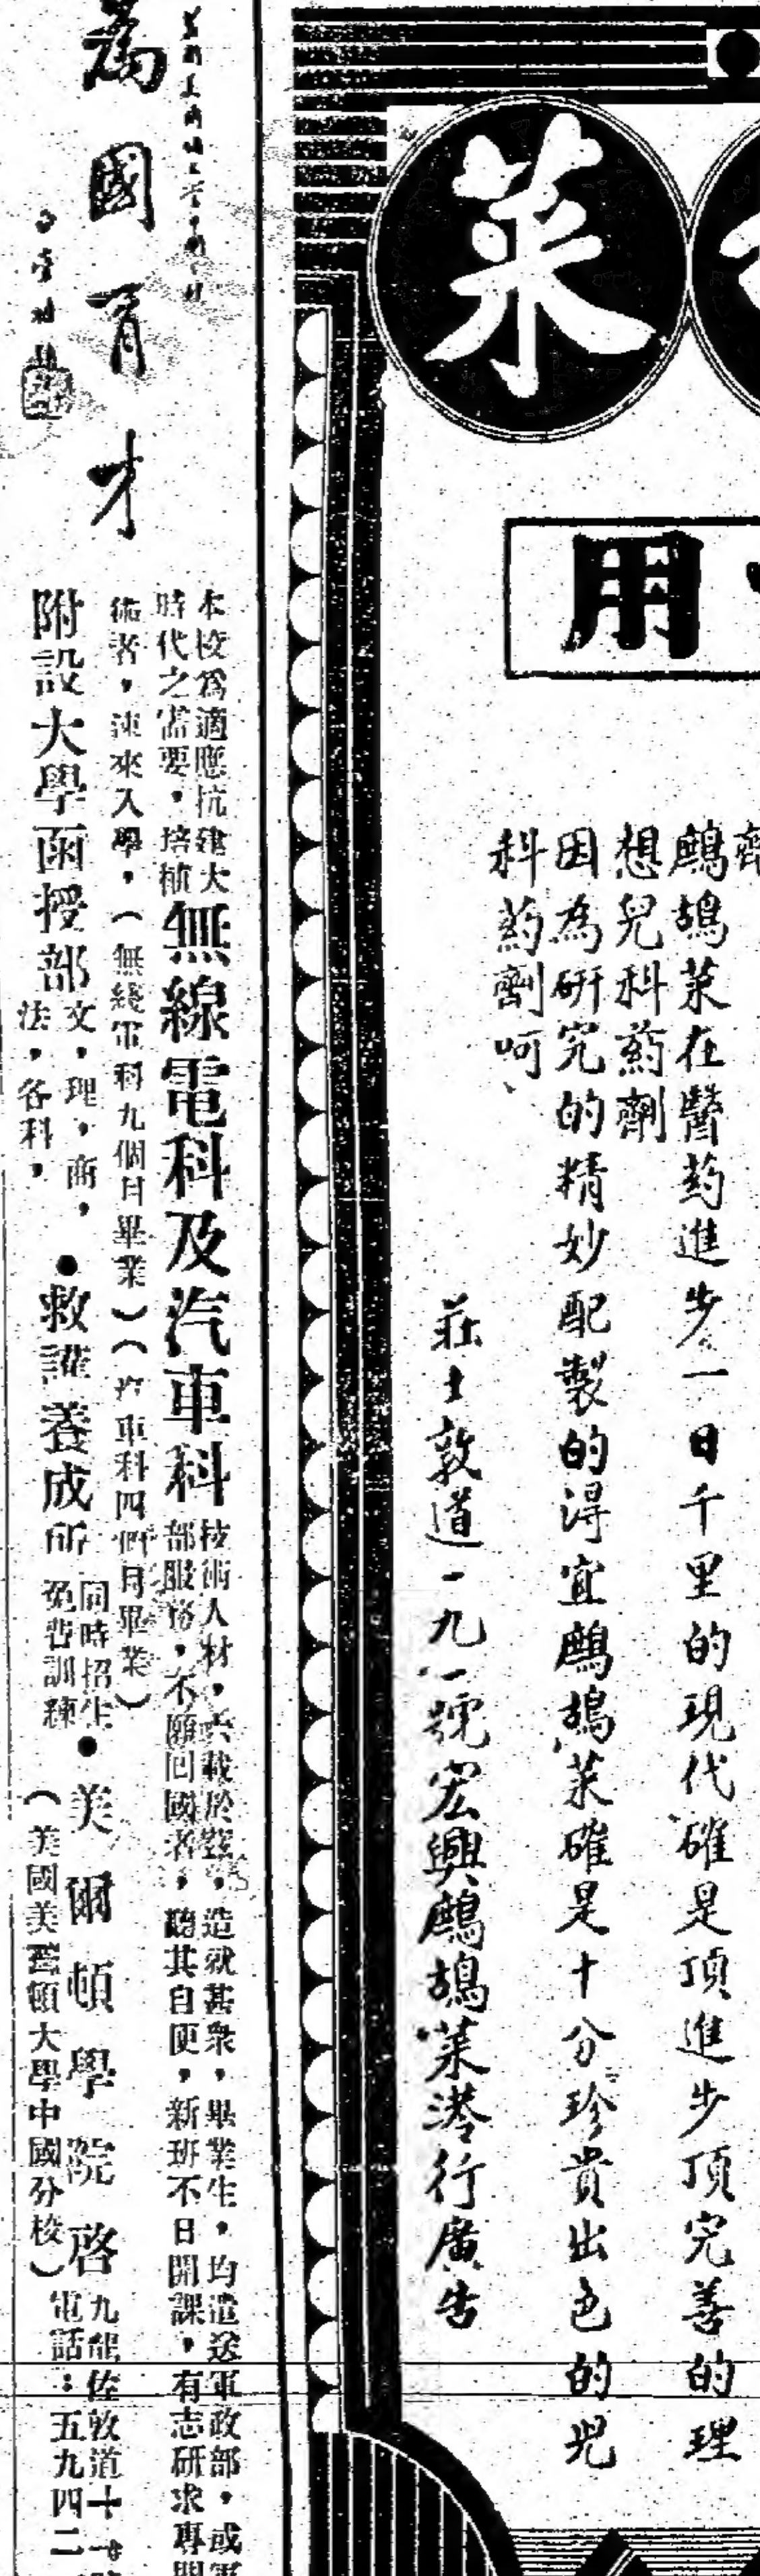 菜
用
鷓鴣菜在醫葯進步一日千里的現代確是頂進步頂完善的理
想兒科葯劑
因為研究的精妙配製的淂宜鷓鴣菜確是十分珍貴出色的兒
科葯劑呵、
莊士敦道一九一號宏興鷓鴣菜港行廣告
為國育才
本校為適應抗建大
時代之需要，培植
無線電科及汽車科
技術人材，六載於茲，造就甚衆，畢業生，均遣送軍政部，或軍
部服務，不願回國者，聽其自便，新班不日開課，有志研求專門
術者，速來入學，（無綫電科九個月畢業）（汽車科四個月畢業）
附設大學函授部
文，理，商，
法，各科，
●救護養成所
同時招生
免費訓練
●美爾頓學院啓
（美國美爾頓大學中國分校）
九龍佐敦道十一
電話：五九四二